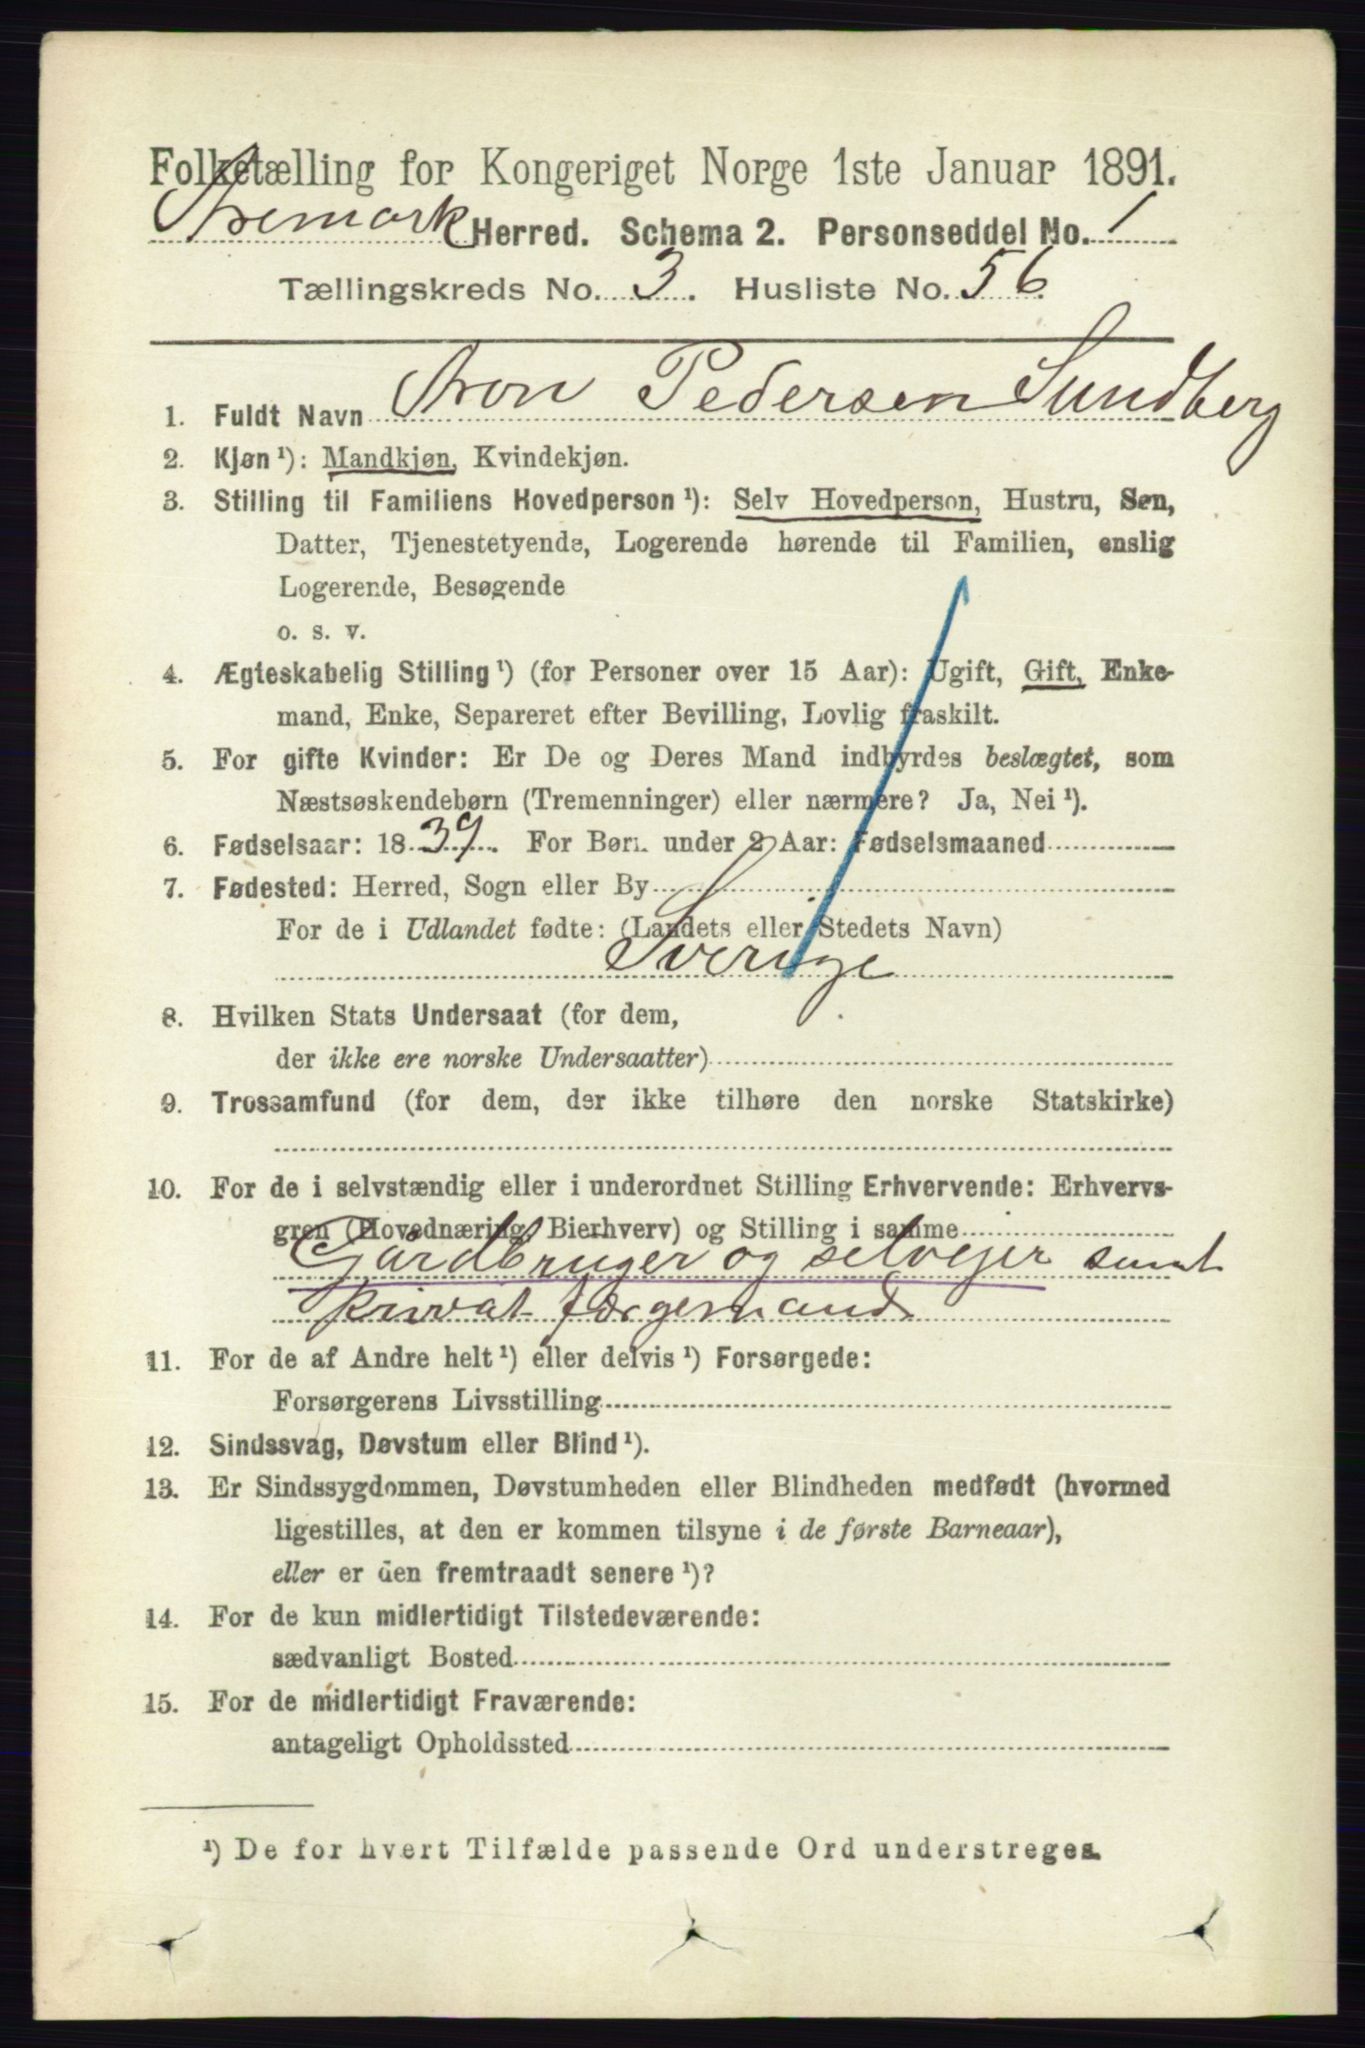 Folketælling for Kongeriget Norge 1ste Januar 1891.
Aremark Herred. Schema 2. Personseddel No. 1
Tællingskreds No. 3. Husliste No. 56.
1. Fuldt Navn Aron Pedersen Sundberg
2. Kjøn ¹): Mandkjøn, Kvindekjøn.
3. Stilling til Familiens Hovedperson ¹): Selv Hovedperson, Hustru, Søn,
Datter, Tjenestetyende, Logerende hørende til Familien, enslig
Logerende, Besøgende
o. s. v.
4. Ægteskabelig Stilling ¹) (for Personer over 15 Aar): Ugift, Gift, Enke-
mand, Enke, Separeret efter Bevilling, Lovlig fraskilt.
5. For gifte Kvinder: Er De og Deres Mand indbyrdes beslægtet, som
Næstsøskendebørn (Tremenninger) eller nærmere? Ja, Nei ¹).
6. Fødselsaar: 1839. For Børn under 2 Aar: Fødselsmaaned
7. Fødested: Herred, Sogn eller By
For de i Udlandet fødte: (Landets eller Stedets Navn)
Sverige
8. Hvilken Stats Undersaat (for dem,
der ikke ere norske Undersaatter)
9. Trossamfund (for dem, der ikke tilhøre den norske Statskirke)
10. For de i selvstændig eller i underordnet Stilling Erhvervende: Erhvervs-
gren (Hovednæring, Bierhverv) og Stilling i samme
Gårdbruger og selvejer samt
privat færgemand
11. For de af Andre helt ¹) eller delvis ¹) Forsørgede:
Forsørgerens Livsstilling
12. Sindssvag, Døvstum eller Blind ¹).
13. Er Sindssygdommen, Døvstumheden eller Blindheden medfødt (hvormed
ligestilles, at den er kommen tilsyne i de første Barneaar),
eller er den fremtraadt senere ¹)?
14. For de kun midlertidigt Tilstedeværende:
sædvanligt Bosted
15. For de midlertidigt Fraværende:
antageligt Opholdssted
¹) De for hvert Tilfælde passende Ord understreges.